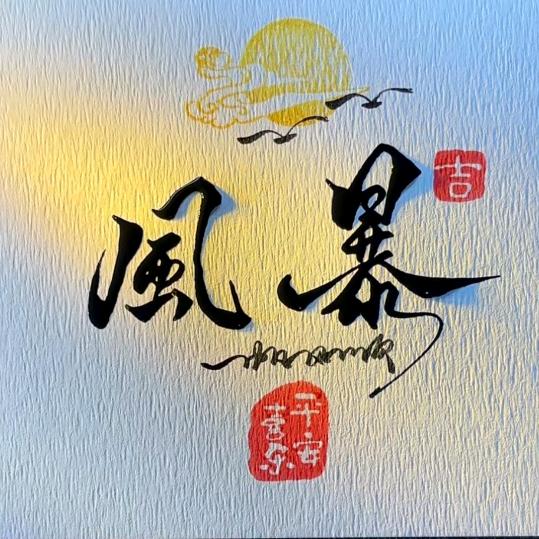 風暴
吉
平安
喜乐